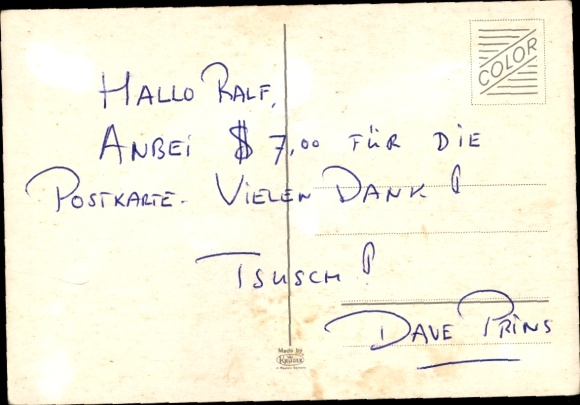 COLOR
HALLO RALF,
ANBEI $ 7,00 FÜR DIE
POSTKARTE. VIELEN DANK!
TSUSCH!
DAVE PRINS
Made by
KRÜGER